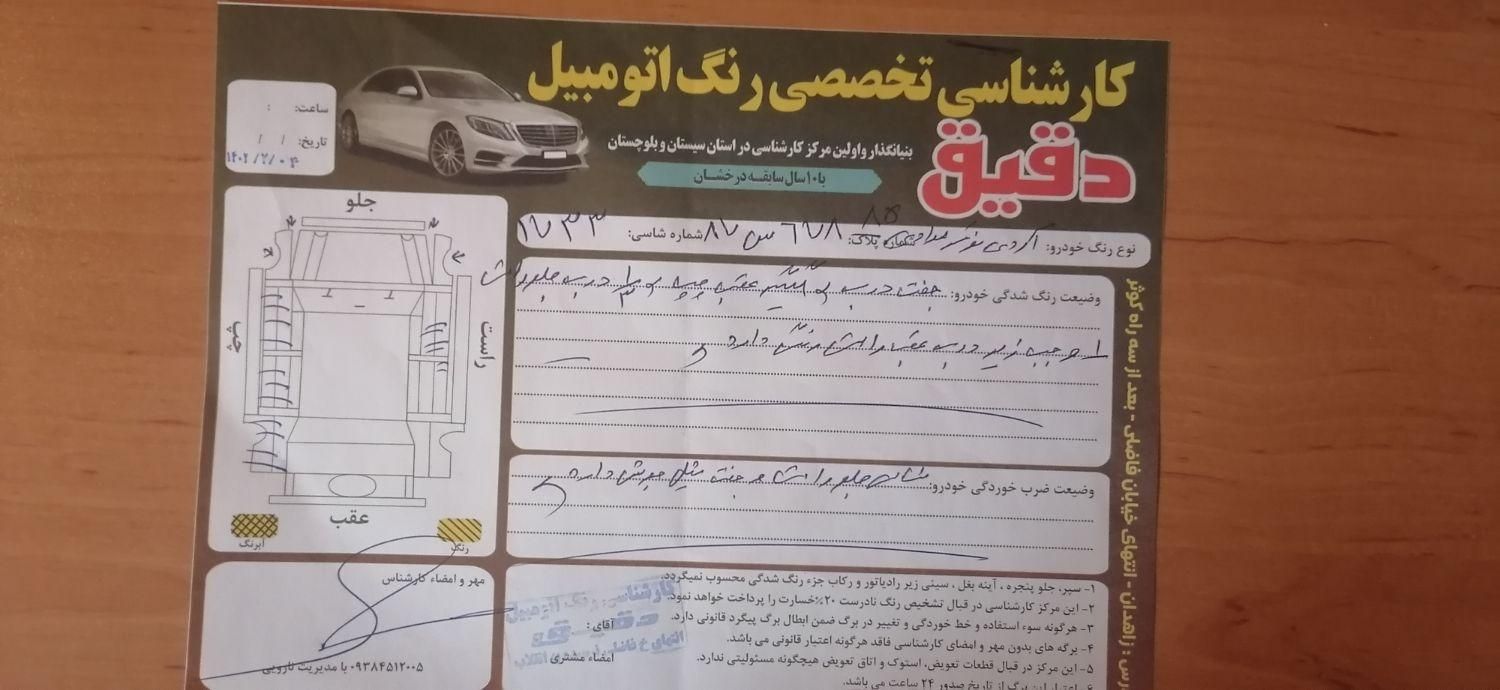 کارشناسی تخصصی رنگ اتومبیل
دقیق
بنیانگذار و اولین مرکز کارشناسی در استان سیستان و بلوچستان
با ۱۰ سال سابقه درخشان
ساعت: :
تاریخ: / /
۱۴۰۲/۲/۰۴
نوع رنگ خودرو: شماره پلاک: شماره شاسی: ۱۷۳۳
وضیعت رنگ شدگی خودرو: جفت درب و گلگیر عقب چپ و ۱/۳ درب جلو راست
۱ وجب زیر درب عقب راست رنگ دارد
وضیعت ضرب خوردگی خودرو: جلو راست و جفت دارد
جلو
راست
چپ
عقب
رنگ
آبرنگ
مهر و امضاء کارشناس
۰۹۳۸۴۵۱۲۰۰۵ با مدیریت نارویی
۱- سپر، جلو پنجره، آینه بغل، سینی زیر رادیاتور و رکاب جزء رنگ شدگی محسوب نمیگردد.
۲- این مرکز کارشناسی در قبال تشخیص رنگ نادرست ۲۰٪ خسارت را پرداخت خواهد نمود.
۳- هرگونه سوء استفاده و خط خوردگی و تغییر در برگ ضمن ابطال برگ پیگرد قانونی دارد.
۴- برگه های بدون مهر و امضای کارشناسی فاقد هرگونه اعتبار قانونی می باشد.
۵- این مرکز در قبال قطعات تعویض، استوک و اتاق تعویض هیچگونه مسئولیتی ندارد.
۶- اعتبار این برگ از تاریخ صدور ۲۴ ساعت می باشد.
آقای:
امضاء مشتری
کارشناسی رنگ اتومبیل
دقیق
انتهای خ فاضلی
رس: زاهدان - انتهای خیابان فاضلی - بعد از سه راه کوثر